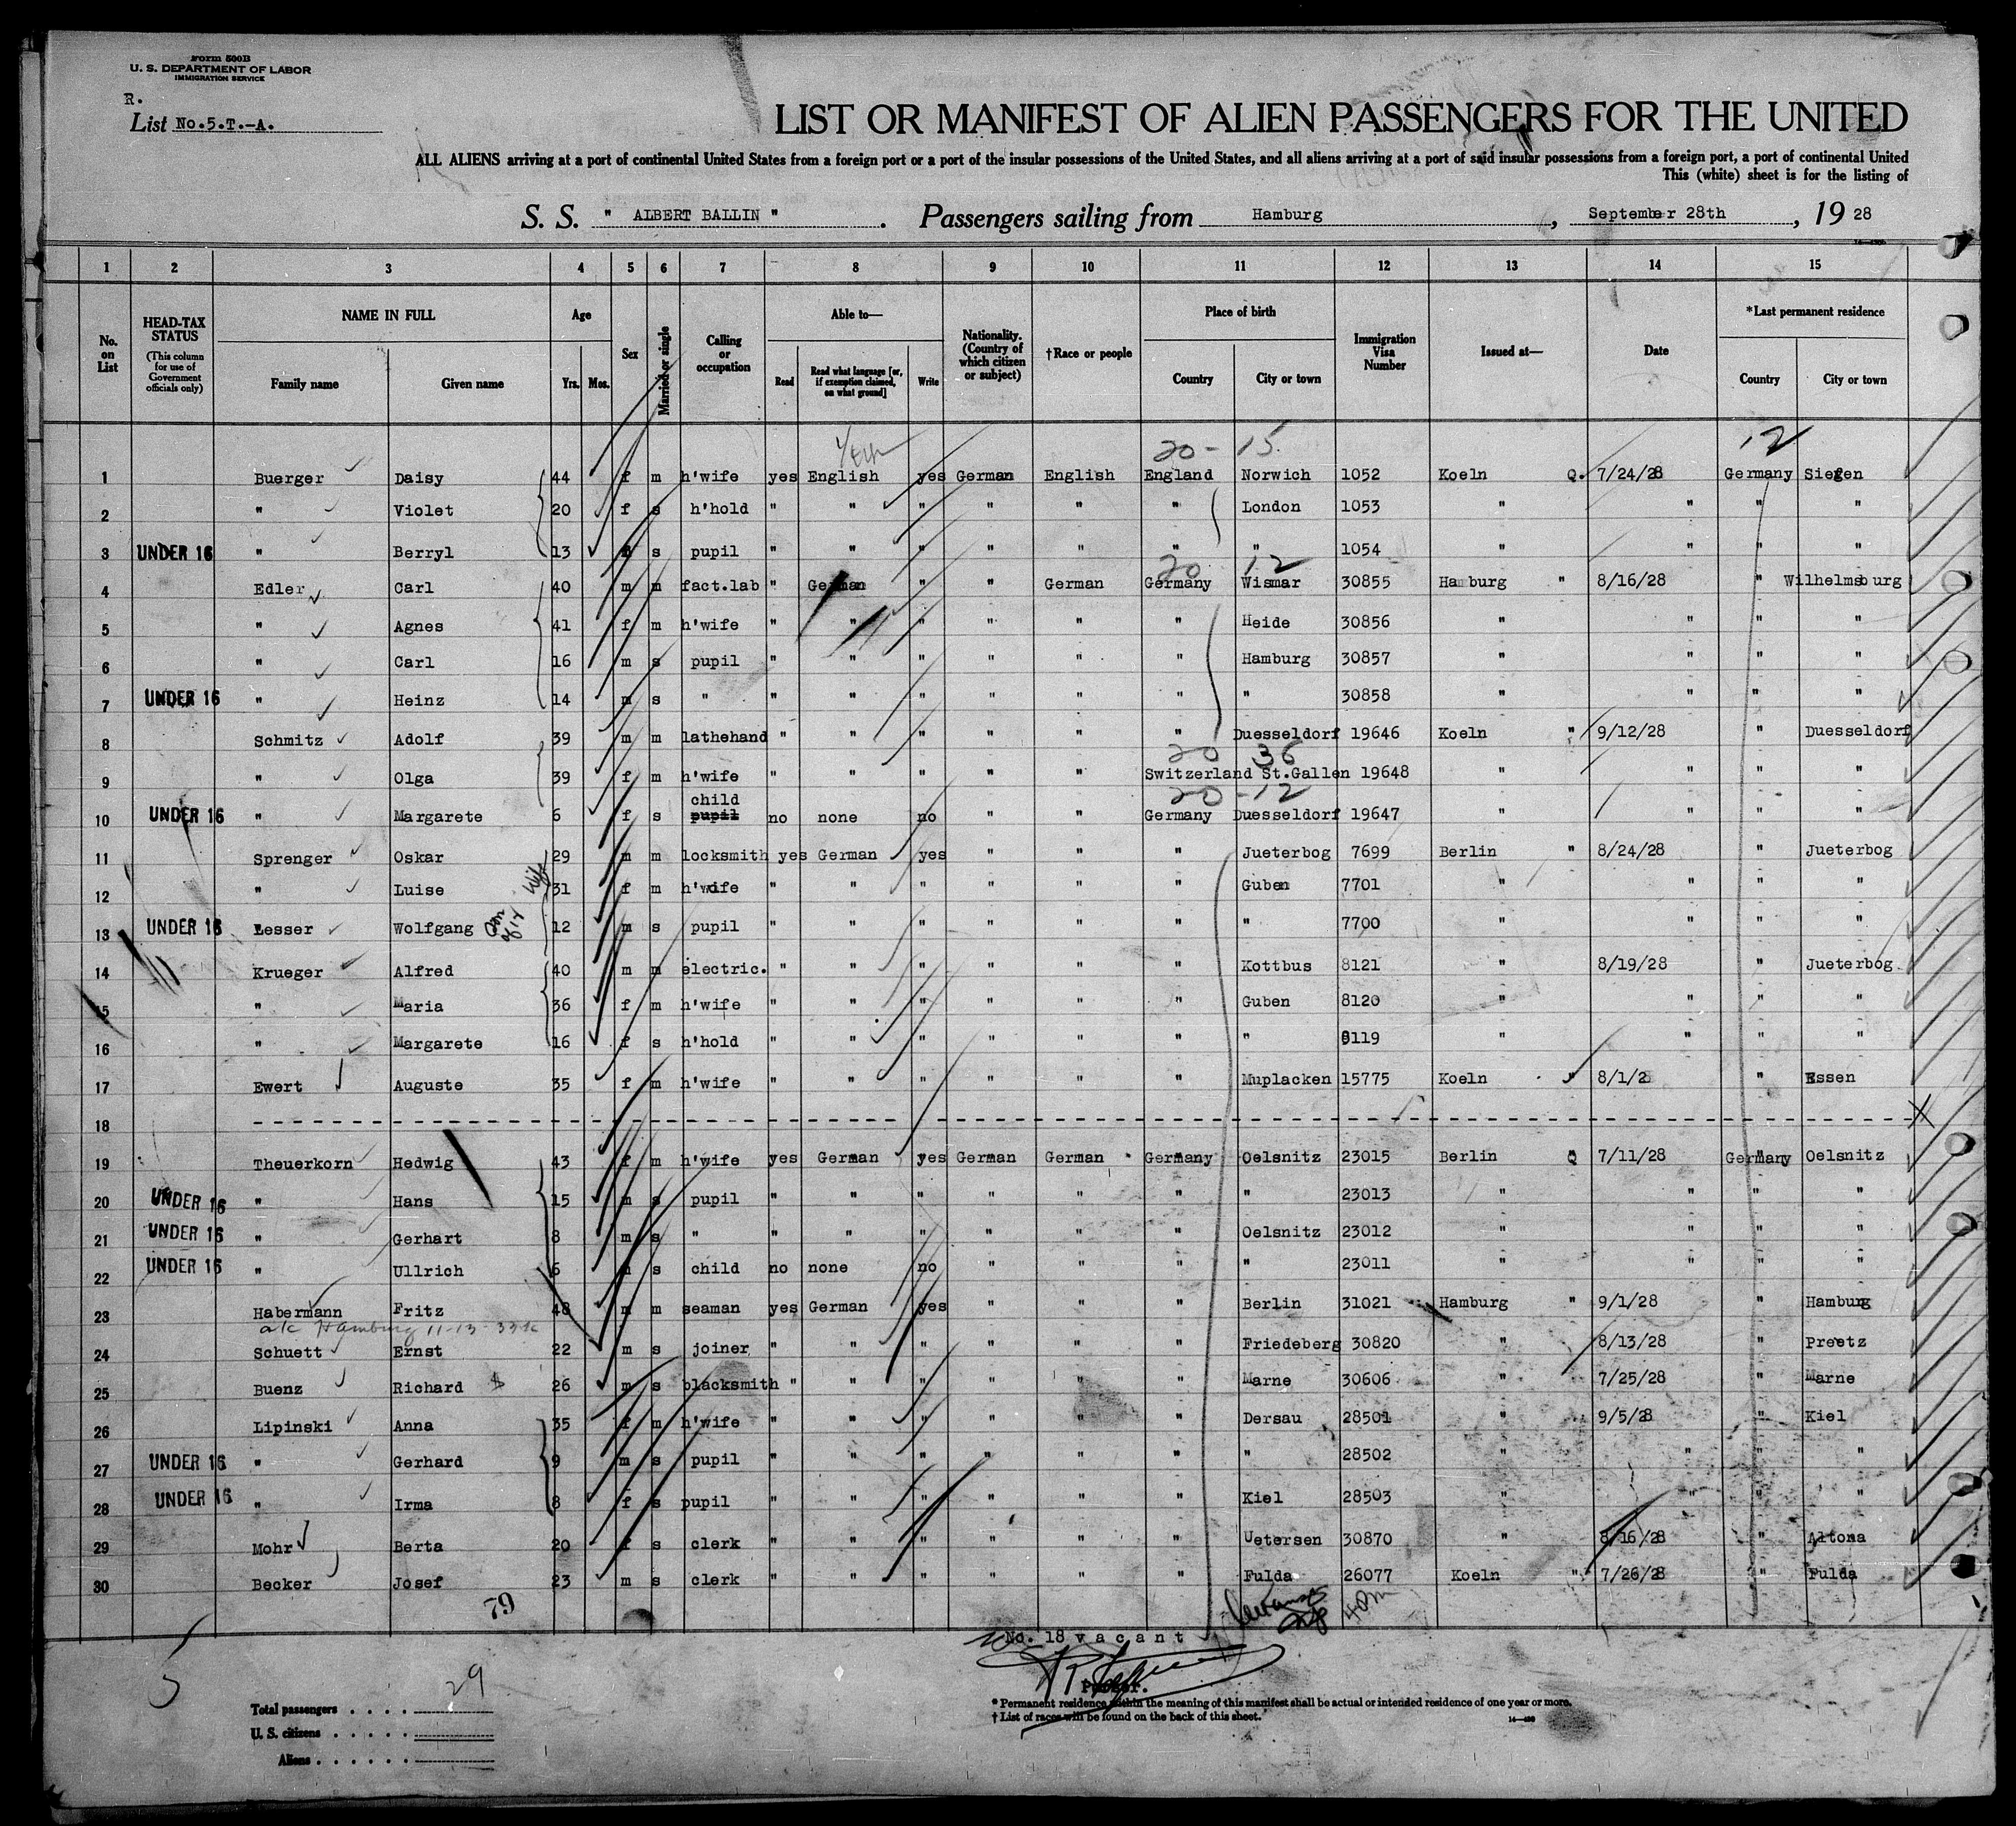 Form 500B
U. S. DEPARTMENT OF LABOR
IMMIGRATION SERVICE
R.
List No.5.T.-A.
LIST OR MANIFEST OF ALIEN PASSENGERS FOR THE UNITED
ALL ALIENS arriving at a port of continental United States from a foreign port or a port of the insular possessions of the United States, and all aliens arriving at a port of said insular possessions from a foreign port, a port of continental United
This (white) sheet is for the listing of
S. S. " ALBERT BALLIN ". Passengers sailing from Hamburg, September 28th, 19 28
1 2 3 4 5 6 7 8 9 10 11 12 13 14 15
No. on List
HEAD-TAX STATUS (This column for use of Government officials only)
NAME IN FULL Family name Given name
Age Yrs. Mos.
Sex
Married or single
Calling or occupation
Able to— Read Read what language [or, if exemption claimed, on what ground] Write
Nationality. (Country of which citizen or subject)
†Race or people
Place of birth Country City or town
Immigration Visa Number
Issued at—
Date
*Last permanent residence Country City or town
20 - 15 12
1 Buerger Daisy 44 f m h'wife yes English yes German English England Norwich 1052 Koeln Q. 7/24/28 Germany Siegen
2 " Violet 20 f s h'hold " " " " " " London 1053 " " " "
3 UNDER 16 " Berryl 13 s pupil " " " " " " " 1054 " " " "
20 12
4 Edler Carl 40 m m fact.lab " German " " German Germany Wismar 30855 Hamburg " 8/16/28 " Wilhelmsburg
5 " Agnes 41 f m h'wife " " " " " " Heide 30856 " " " "
6 " Carl 16 m s pupil " " " " " " Hamburg 30857 " " " "
7 UNDER 16 " Heinz 14 m s " " " " " " " " 30858 " " " "
8 Schmitz Adolf 39 m m lathehand " " " " " " Duesseldorf 19646 Koeln " 9/12/28 " Duesseldorf
20 36
9 " Olga 39 f m h'wife " " " " " Switzerland St.Gallen 19648 " " " "
20 - 12
10 UNDER 16 " Margarete 6 f s child pupil no none no " " Germany Duesseldorf 19647 " " " "
11 Sprenger Oskar 29 m m locksmith yes German yes " " " Jueterbog 7699 Berlin " 8/24/28 " Jueterbog
12 " Luise Wife 31 f m h'wife " " " " " " Guben 7701 " " " "
13 UNDER 16 Lesser Wolfgang 12 m s pupil " " " " " " " 7700 " " " "
14 Krueger Alfred 40 m m electric. " " " " " " Kottbus 8121 " 8/19/28 " Jueterbog
15 " Maria 36 f m h'wife " " " " " " Guben 8120 " " " "
16 " Margarete 16 f s h'hold " " " " " " " 8119 " " " "
17 Ewert Auguste 35 f m h'wife " " " " " " Muplacken 15775 Koeln " 8/1/28 " Essen
18
19 Theuerkorn Hedwig 43 f m h'wife yes German yes German German Germany Oelsnitz 23015 Berlin Q 7/11/28 Germany Oelsnitz
20 UNDER 16 " Hans 15 m s pupil " " " " " " " 23013 " " " "
21 UNDER 16 " Gerhart 8 m s " " " " " " " Oelsnitz 23012 " " " "
22 UNDER 16 " Ullrich 6 s child no none no " " " " 23011 " " " "
23 Habermann Fritz 48 m m seaman yes German yes " " " Berlin 31021 Hamburg " 9/1/28 " Hamburg
Hamburg 11-13-33
24 Schuett Ernst 22 m s joiner " " " " " " Friedeberg 30820 " 8/13/28 " Preetz
25 Buenz Richard 26 m s blacksmith " " " " " " Marne 30606 " 7/25/28 " Marne
26 Lipinski Anna 35 f m h'wife " " " " " " Dersau 28501 " 9/5/28 " Kiel
27 UNDER 16 " Gerhard 9 m s pupil " " " " " " " 28502 " " " "
28 UNDER 16 " Irma 8 f s pupil " " " " " " Kiel 28503 " " " "
29 Mohr Berta 20 f s clerk " " " " " " Uetersen 30870 " 8/16/28 " Altona
30 Becker Josef 23 m s clerk " " " " " " Fulda 26077 Koeln " 7/26/28 " Fulda
79
No. 18 vacant
29
Total passengers
U. S. citizens
Aliens
* Permanent residence within the meaning of this manifest shall be actual or intended residence of one year or more.
† List of races will be found on the back of this sheet.